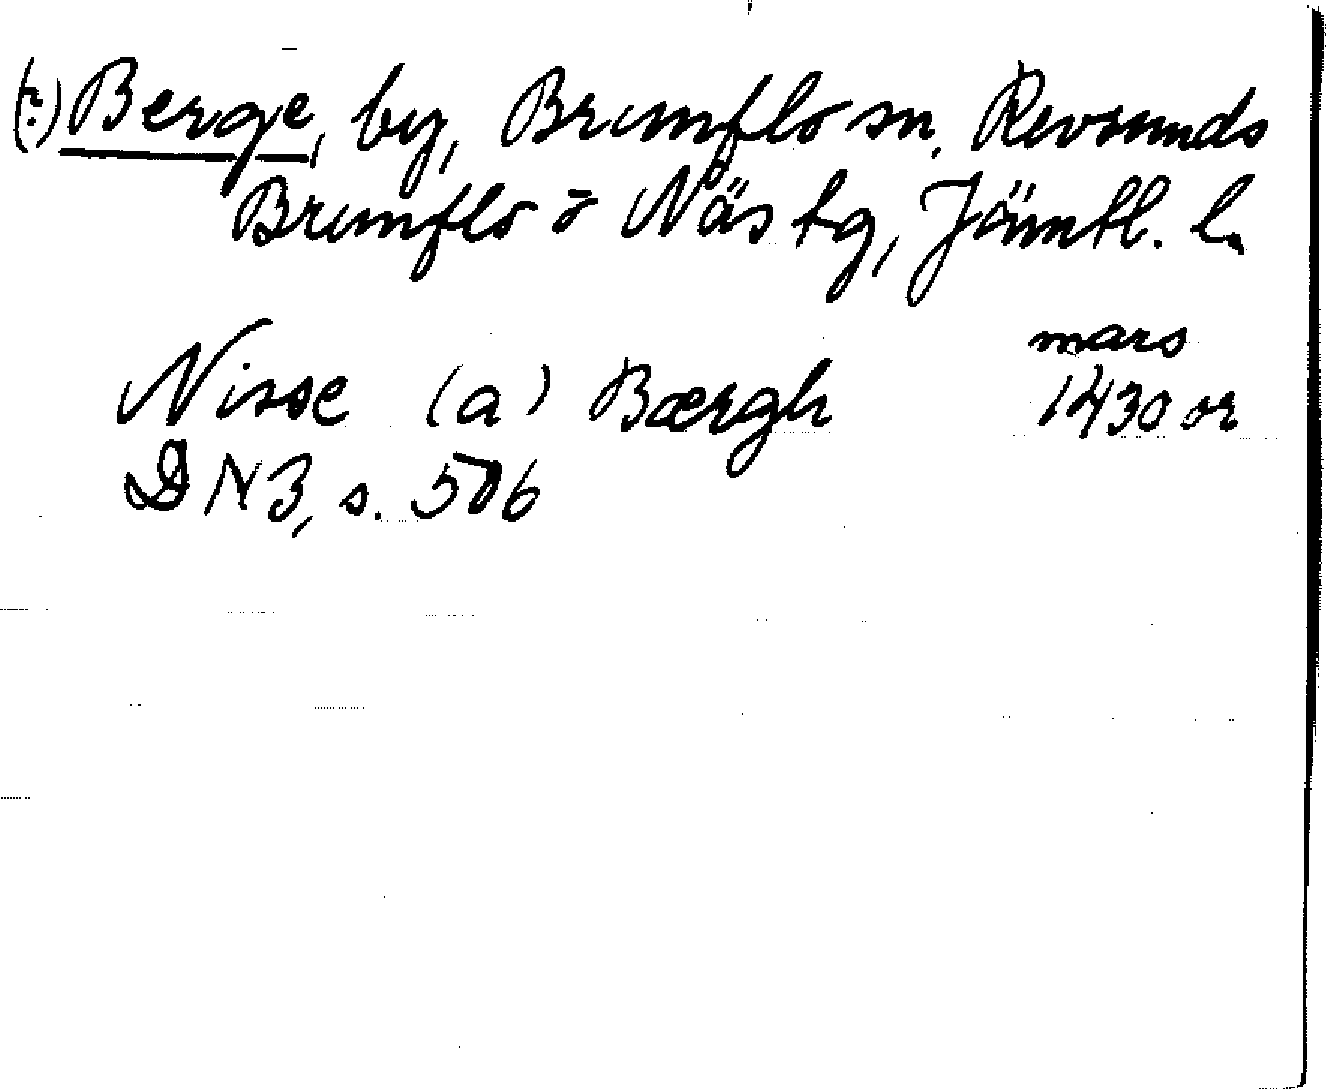 (?) Berge, by, Brunflo sn, Revsunds
Brunflo o Näs tg, Jämtl. l.
Nisse (a) Bærgh mars 1430 or
DN3, s. 506